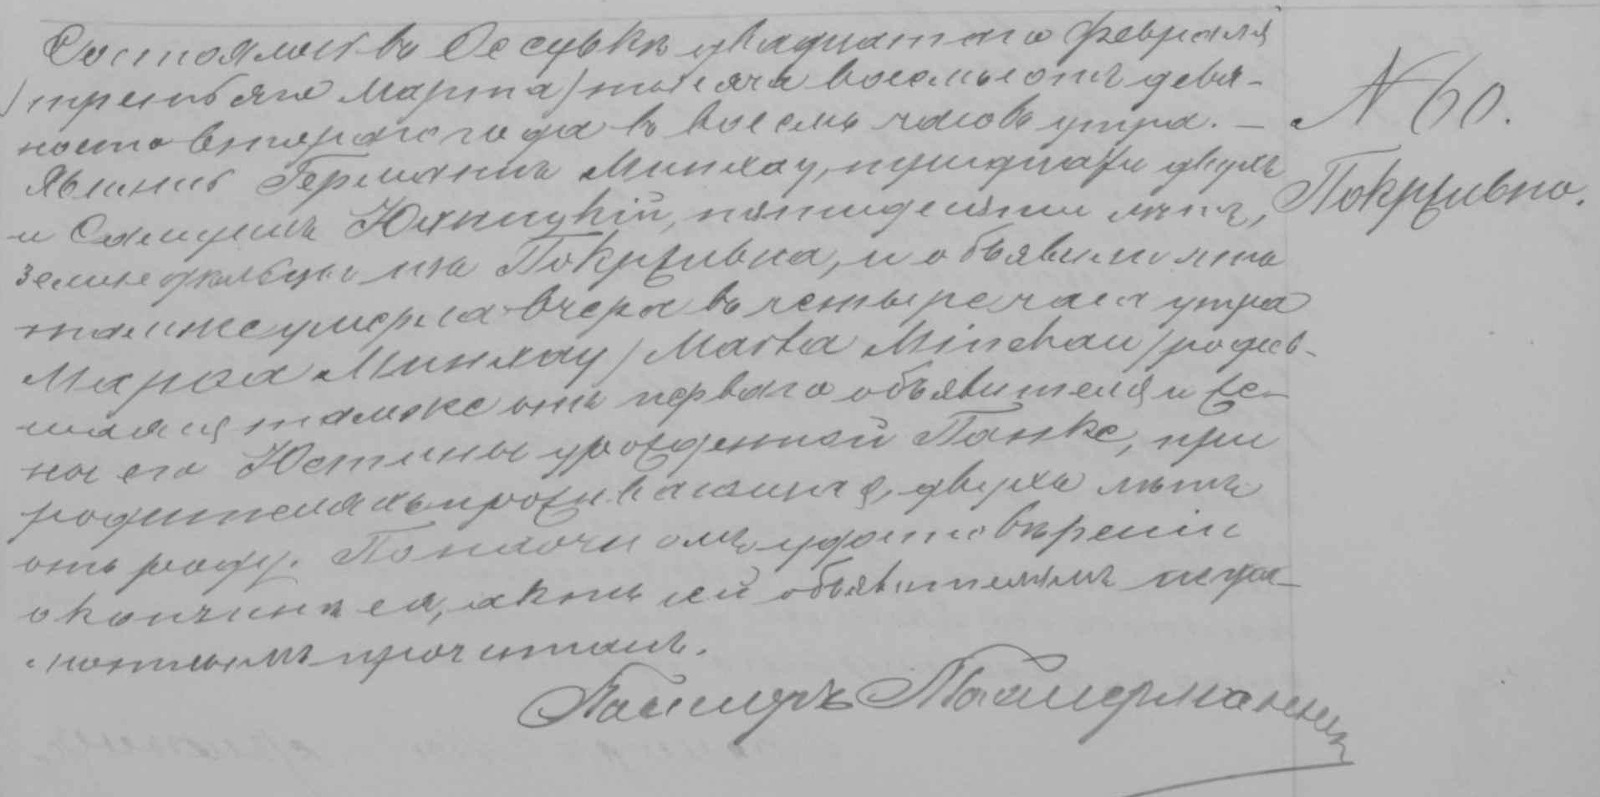 Состоялось въ Осоувкѣ двадцатаго Февраля
/третьяго Марта/ тысяча восемьсотъ девя-
носто втораго года въ восемь часовъ утра. —
Явились Германъ Минхау, тридцати двухъ
и Самуилъ Юхницкій, пятидесяти лѣтъ,
земледѣльцы изъ Покрживна, и объявили что
тамже умерла вчера въ четыре часа утра
Марѳа Минхау /Marta Minchau/ родив-
шаяся тамже отъ перваго объявителя и же-
ны его Юстины урожденной Панке, при
родителяхъ проживающая, двухъ лѣтъ
отъ роду. По наочномъ удостовѣреніи
о кончинѣ ея, актъ сей объявителямъ негра-
мотнымъ прочитанъ.
Пасторъ
N 60.
Покрживно.